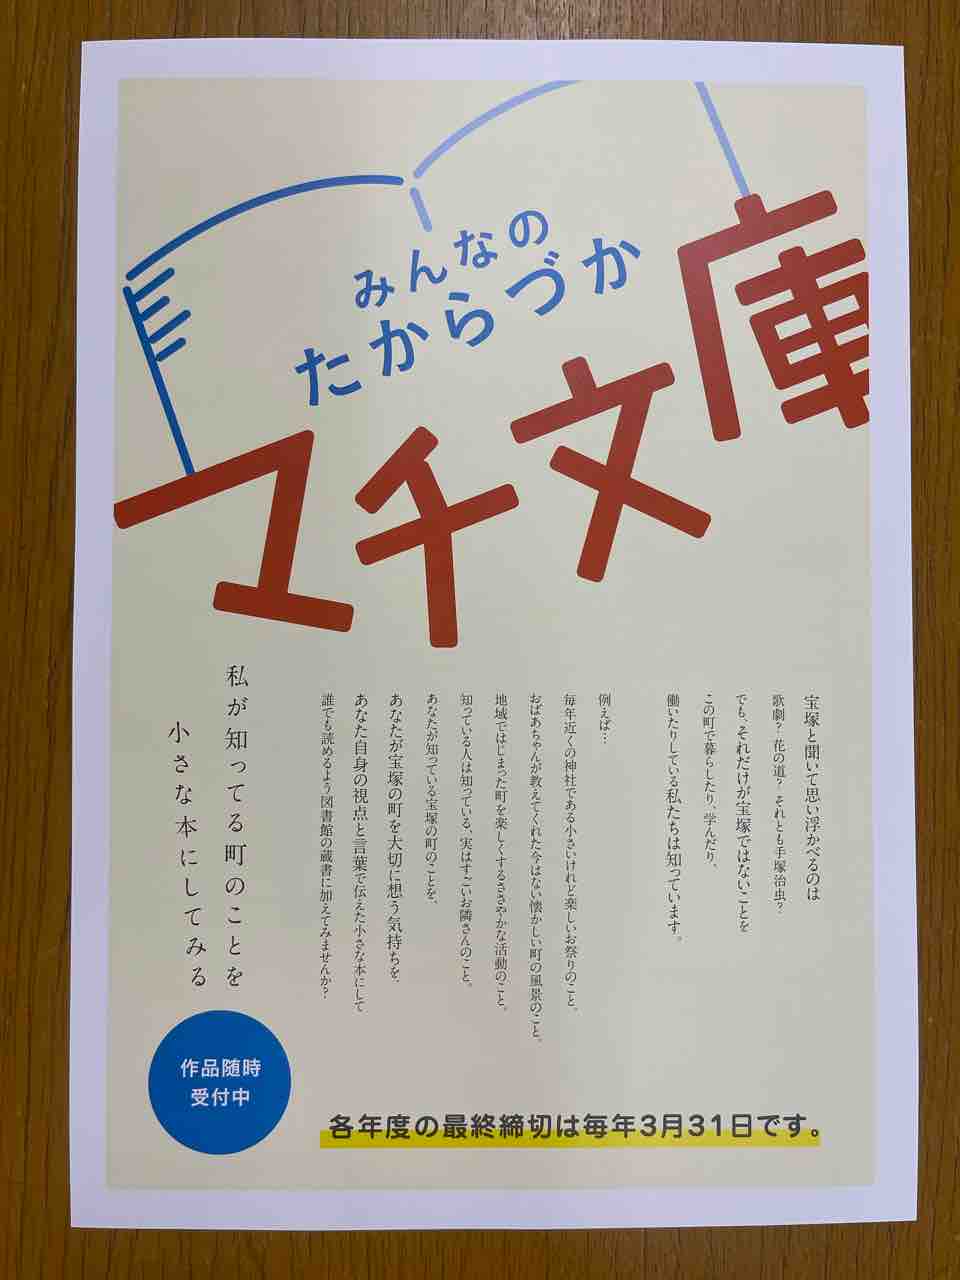 みんなの
たからづか
マチ文庫
宝塚と聞いて思い浮かべるのは
歌劇？ 花の道？ それとも手塚治虫？
でも、それだけが宝塚ではないことを
この町で暮らしたり、学んだり、
働いたりしている私たちは知っています。
例えば…
毎年近くの神社である小さいけれど楽しいお祭りのこと。
おばあちゃんが教えてくれた今はない懐かしい町の風景のこと。
地域ではじまった町を楽しくするささやかな活動のこと。
知っている人は知っている、実はすごいお隣さんのこと。
あなたが知っている宝塚の町のことを、
あなたが宝塚の町を大切に想う気持ちを、
あなた自身の視点と言葉で伝えた小さな本にして
誰でも読めるよう図書館の蔵書に加えてみませんか？
私が知ってる町のことを
小さな本にしてみる
作品随時
受付中
各年度の最終締切は毎年3月31日です。